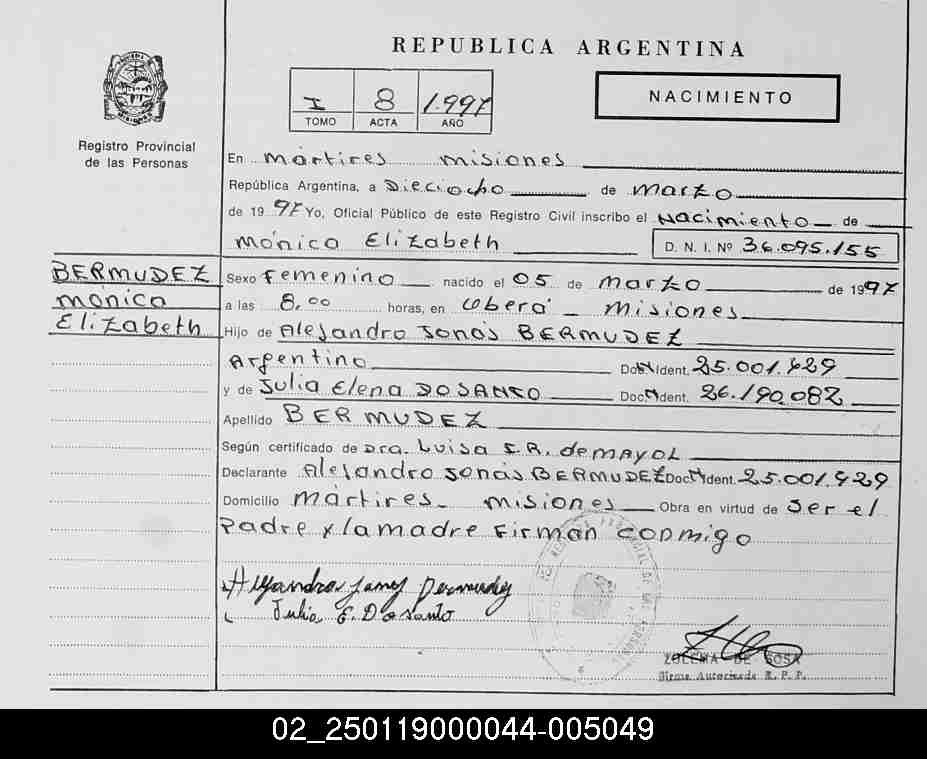 REPUBLICA ARGENTINA
I 8 1.997
TOMO ACTA AÑO
NACIMIENTO
Registro Provincial
de las Personas
En Mártires Misiones
República Argentina, a Dieciocho de Marzo
de 1997 Yo, Oficial Público de este Registro Civil inscribo el Nacimiento de
Mónica Elizabeth D. N. I. Nº 36.095.155
BERMUDEZ
Mónica
Elizabeth
Sexo Femenino nacido el 05 de Marzo de 1997
a las 8,00 horas, en Oberá - Misiones
Hijo de Alejandro Jonás BERMUDEZ
Argentino Doc. Ident. 25.001.429
y de Julia Elena DOSANTO Doc. Ident. 26.190.082
Apellido BERMUDEZ
Según certificado de Dra. Luisa I.R. de MAYOL
Declarante Alejandro Jonás BERMUDEZ Doc. Ident. 25.001.429
Domicilio Mártires - Misiones Obra en virtud de ser el
Padre y la madre Firman conmigo
Julia E. Dosanto
ZULEMA DE SOSA
Firma Autorizada R. P. P.
02_250119000044-005049